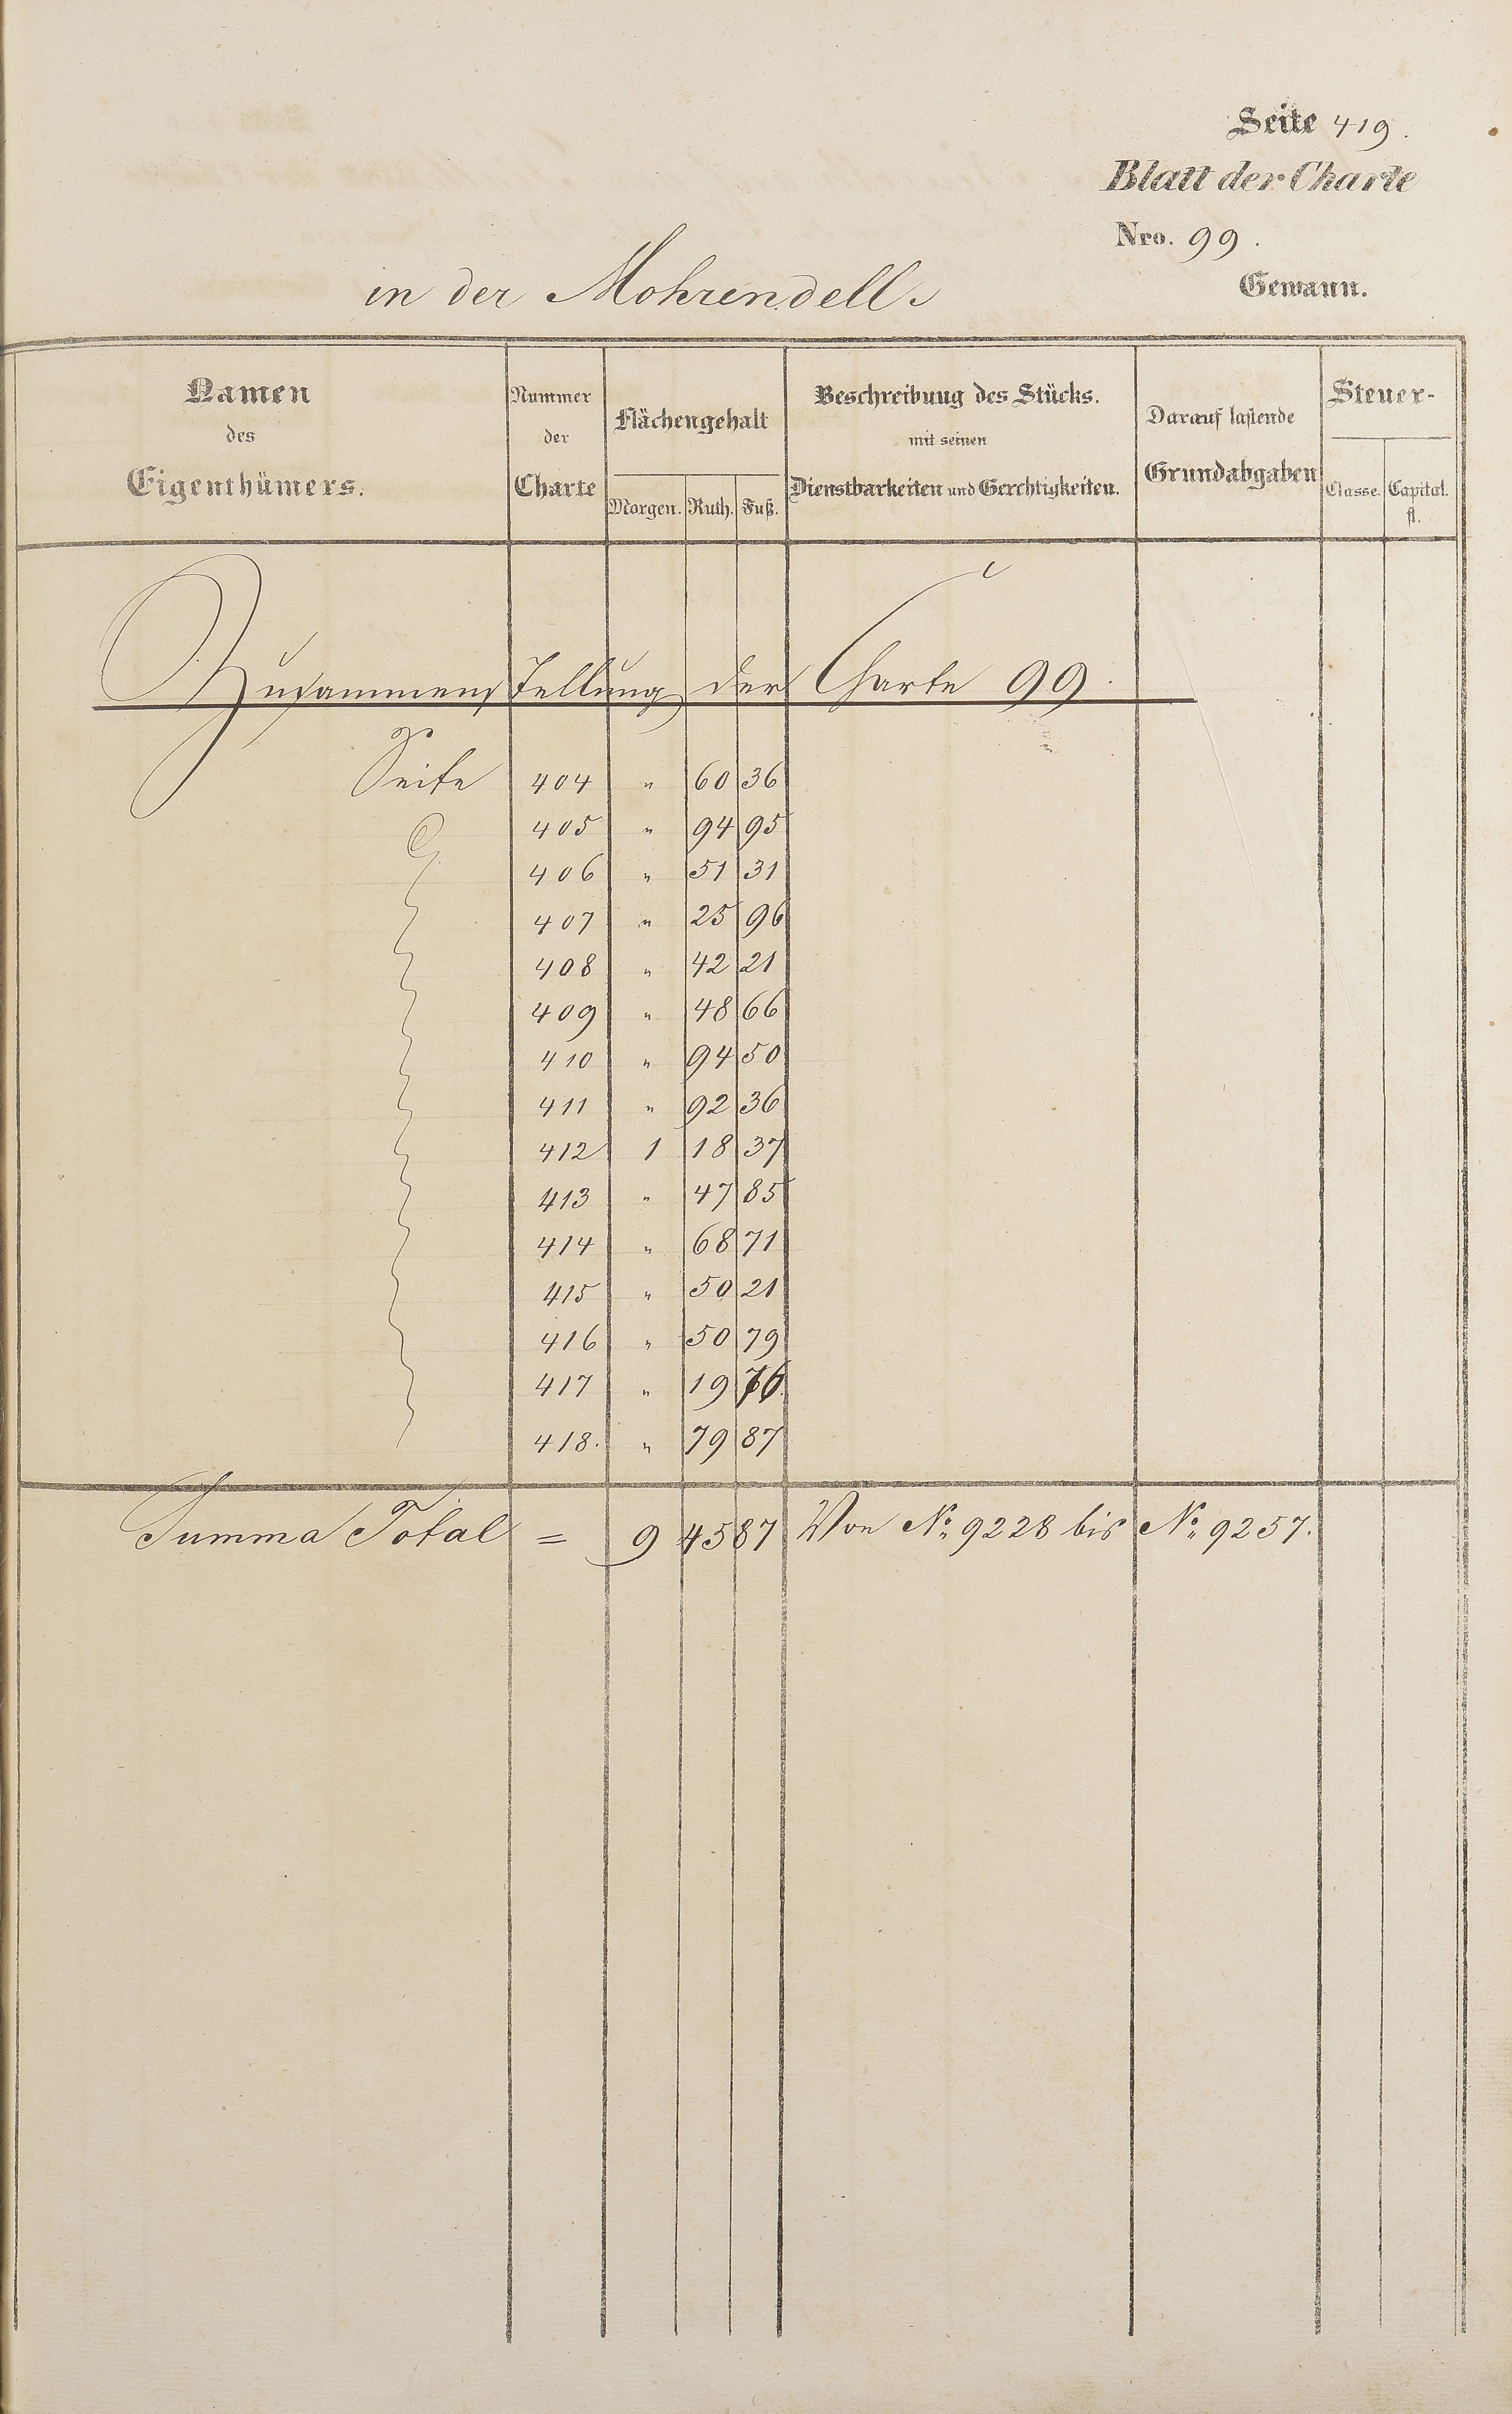 Seite 419.
Blatt der Charte
Nro. 99.
in der Mohrendell Gewann.
Namen des Eigenthümers.
Nummer der Charte
Flächengehalt
Morgen. Ruth. Fuß.
Beschreibung des Stücks.
mit seinen
Dienstbarkeiten und Gerechtigkeiten.
Darauf lastende
Grundabgaben
Steuer-
Classe. Capital.
fl.
Zusammenstellung der Charte 99.
Seite 404 " 60 36
405 " 94 95
406 " 51 31
407 " 25 96
408 " 42 21
409 " 48 66
410 " 94 50
411 " 92 36
412 1 18 37
413 " 47 85
414 " 68 71
415 " 50 21
416 " 50 79
417 " 19 76
418. " 79 87
Summa Total = 9 45 87 Von No. 9228 bis No. 9257.